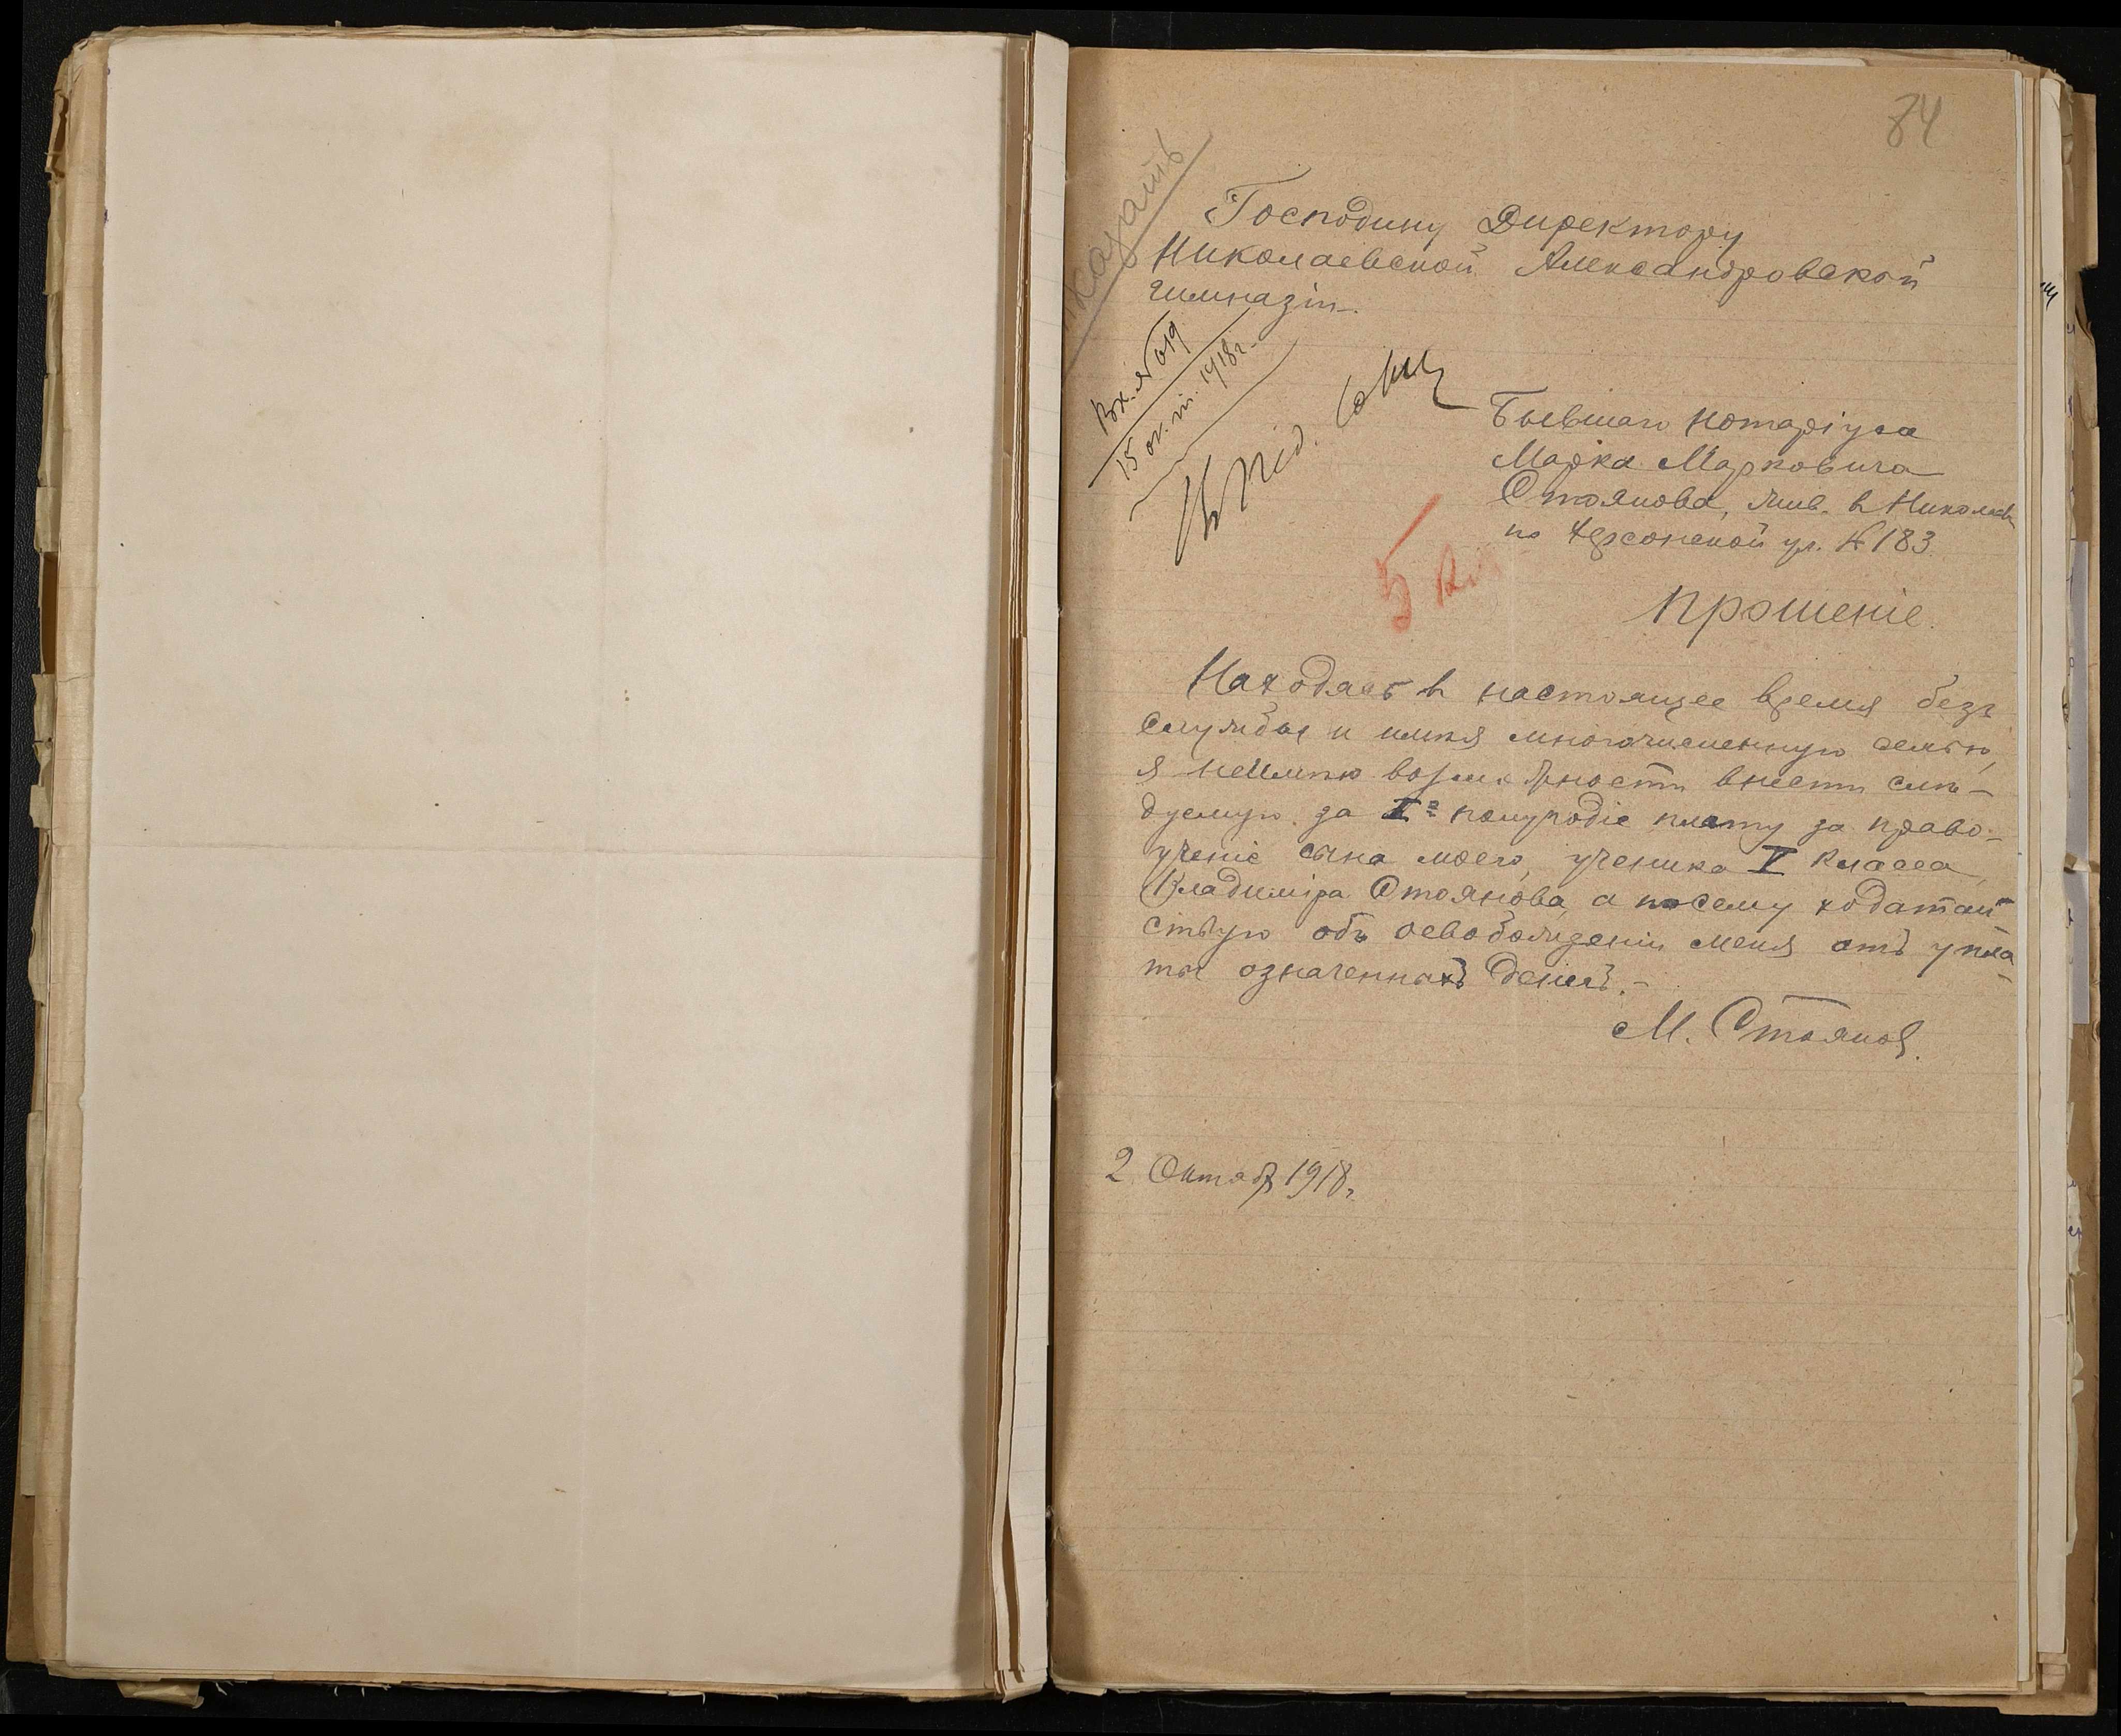 84
Отказать
Господину Директору
Николаевской Александровской
гимназіи.
Вх. № 619
15 ок. м. 1918 г.
Бывшаго нотаріуса
Марка Марковича
Стоянова, жив. в Николаеве
по Херсонской ул. № 183
5 кл
Прошеніе.
Находясь в настоящее время безъ
службы и имѣя многочисленную семью,
я неимѣю возможности внести слѣ-
дуемую за I-е полугодіе плату за право-
ученіе сына моего, ученика V класса,
Владиміра Стоянова, а посему ходатай-
ствую объ освобожденіи меня отъ упла-
ты означенныхъ денегъ.-
М. Стоянов.
2 Октяб 1918 г.